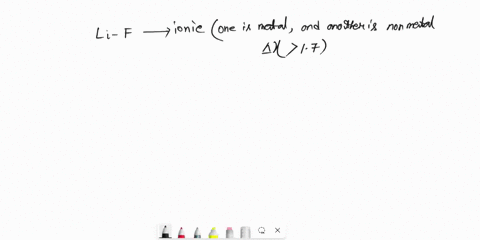 Li-F ⟶ ionic (one is metal, and another is non metal
Δχ > 1.7)